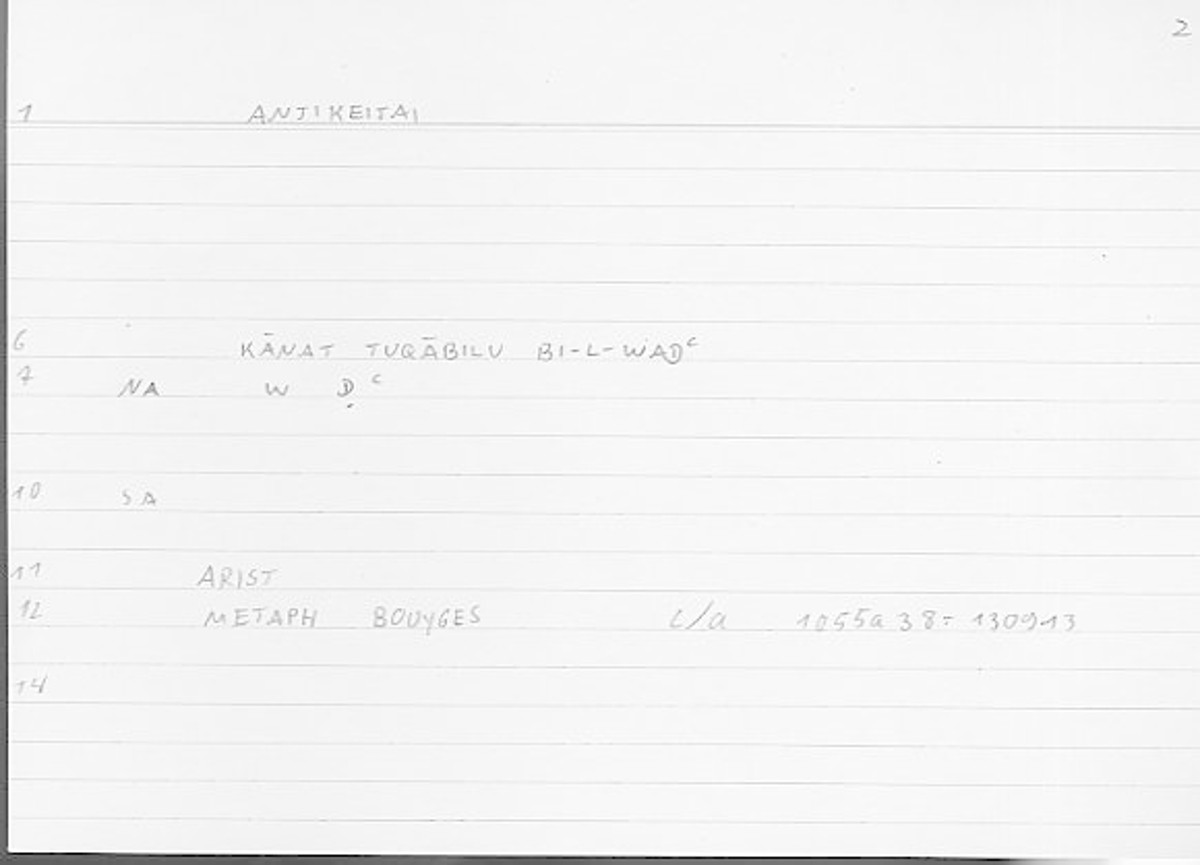 2
1 ANTIKEITAI
6 KĀNAT TUQĀBILU BI-L-WAḌʿ
7 NA W Ḍ ʿ
10 SA
11 ARIST
12 METAPH BOUYGES L/a 1055a 38 = 1309,13
14